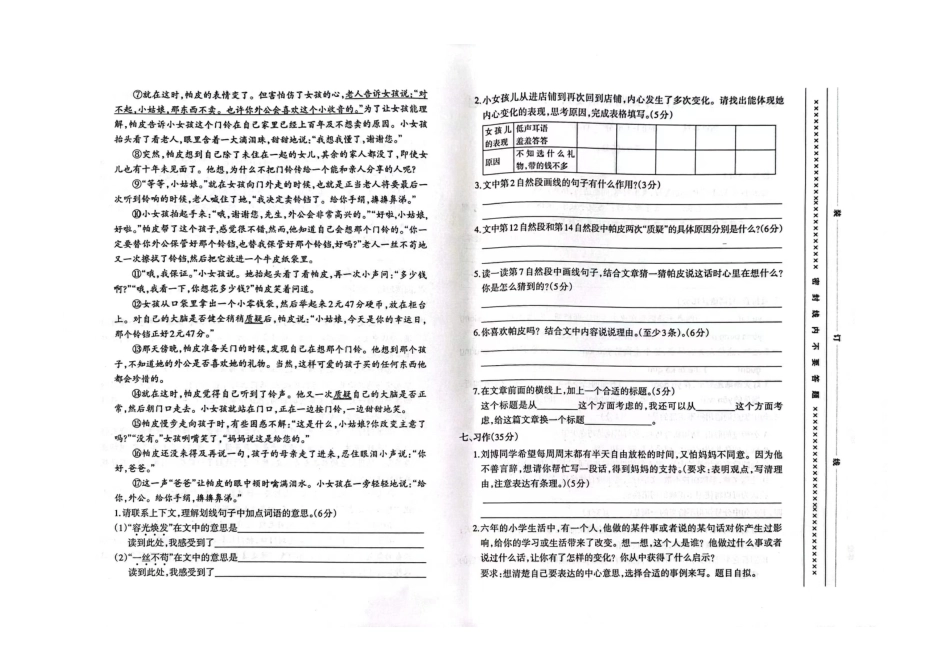 ⑦就在这时,帕皮的表情变了。但害怕伤了女孩的心,老人告诉女孩说:“对
不起,小姑娘,那东西不卖。也许你外公会喜欢这个小收音的。”为了让女孩能理
解,帕皮告诉小女孩这个门铃在自己家里已经上百年及不想卖的原因。小女孩
抬头看了看老人,眼里含着一大滴泪珠,甜甜地说:“我想我懂了,谢谢您。”
⑧突然,帕皮想到自己除了未住在一起的女儿,其余的家人都没了,即使女
儿也有十年未见面了。他想,为什么不把门铃传给一个能和亲人分享的人呢?
⑨“等等,小姑娘。”就在女孩向门外走的时候,也就是正当老人将要最后一
次听到铃响的时候,老人喊住了她,“我决定卖铃铛了。给你手绢,擤擤鼻涕。”
⑩小女孩拍起手来:“哦,谢谢您,先生,外公会非常高兴的。”“好啦,小姑娘,
好啦。”帕皮帮了这个孩子,感觉很不错,然而,他知道自己会想那个门铃的。“你一
定要替你外公保管好那个铃铛,也替我保管好那个铃铛,好吗?”老人一丝不苟地
又一次擦拭了铃铛,然后把它放进一个牛皮纸袋里。
⑪“哦,我保证。”小女孩说。她抬起头看了看帕皮,再一次小声问:“多少钱
啊?”“哦,我看一下,你想花多少钱?”帕皮笑着问道。
⑫女孩从口袋里拿出一个小零钱袋,然后举起来2元47分硬币,放在柜台
上。对自己的大脑是否健全稍稍质疑后,帕皮说:“小姑娘,今天是你的幸运日,
那个铃铛正好2元47分。”
⑬那天傍晚,帕皮准备关门的时候,发现自己在想那个门铃。他想到那个孩
子,不知道她的外公是否喜欢她的礼物。当然,这样可爱的孩子买的任何东西他
都会珍惜的。
⑭就在这时,帕皮觉得自己已听到了铃声。他又一次质疑自己的大脑是否正
常,然后朝门口走去。小女孩就站在门口,正在一边按门铃,一边甜甜地笑。
⑮帕皮慢步走向孩子时,有些困惑不解:“这是什么,小姑娘?你改变主意了
吗?”“没有。”女孩咧嘴笑了,“妈妈说这是给您的。”
⑯帕皮还没来得及再说一句,孩子的母亲走了进来,忍住眼泪小声说:“你
好,爸爸。”
⑰这一声“爸爸”让帕皮的眼中顿时噙满泪水。小女孩在一旁轻轻地说:“给
你,外公。给你手绢,擤擤鼻涕。”
1.请联系上下文,理解划线句子中加点词语的意思。(6分)
(1)“容光焕发”在文中的意思是
读到此处,我感受到了
(2)“一丝不苟”在文中的意思是
读到此处,我感受到了
2.小女孩儿从进店铺到再次回到店铺,内心发生了多次变化。请找出能体现她
内心变化的表现,思考原因,完成表格填写。(5分)
女孩儿的表现 低声耳语羞羞答答
原因 不知选什么礼物,带的钱不多
3.文中第2自然段画线的句子有什么作用?(3分)
4.文中第12自然段和第14自然段中帕皮两次“质疑”的具体原因分别是什么?(6分)
5.读一读第7自然段中画线句子,结合文章猜一猜帕皮说这话时心里在想什么?
你是怎么猜到的?(5分)
6.你喜欢帕皮吗?结合文中内容说说理由。(至少3条)。(6分)
7.在文章前面的横线上,加上一个合适的标题。(5分)
这个标题是从________这个方面考虑的,我还可以从________这个方面考
虑,给这篇文章换一个标题________。
七、习作(35分)
1.刘博同学希望每周周末都有半天自由放松的时间,又怕妈妈不同意。因为他
不善言辞,想请你帮忙写一段话,得到妈妈的支持。(要求:表明观点,写清理
由,注意表达有条理。)(5分)
2.六年的小学生活中,有一个人,他做的某件事或者说的某句话对你产生过影
响,给你的学习或生活带来了改变。想一想,这个人是谁?他做过什么事或者
说过什么话,让你有了怎样的变化?你从中获得了什么启示?
要求:想清楚自己要表达的中心意思,选择合适的事例来写。题目自拟。
密封线内不要答题
装
订
线